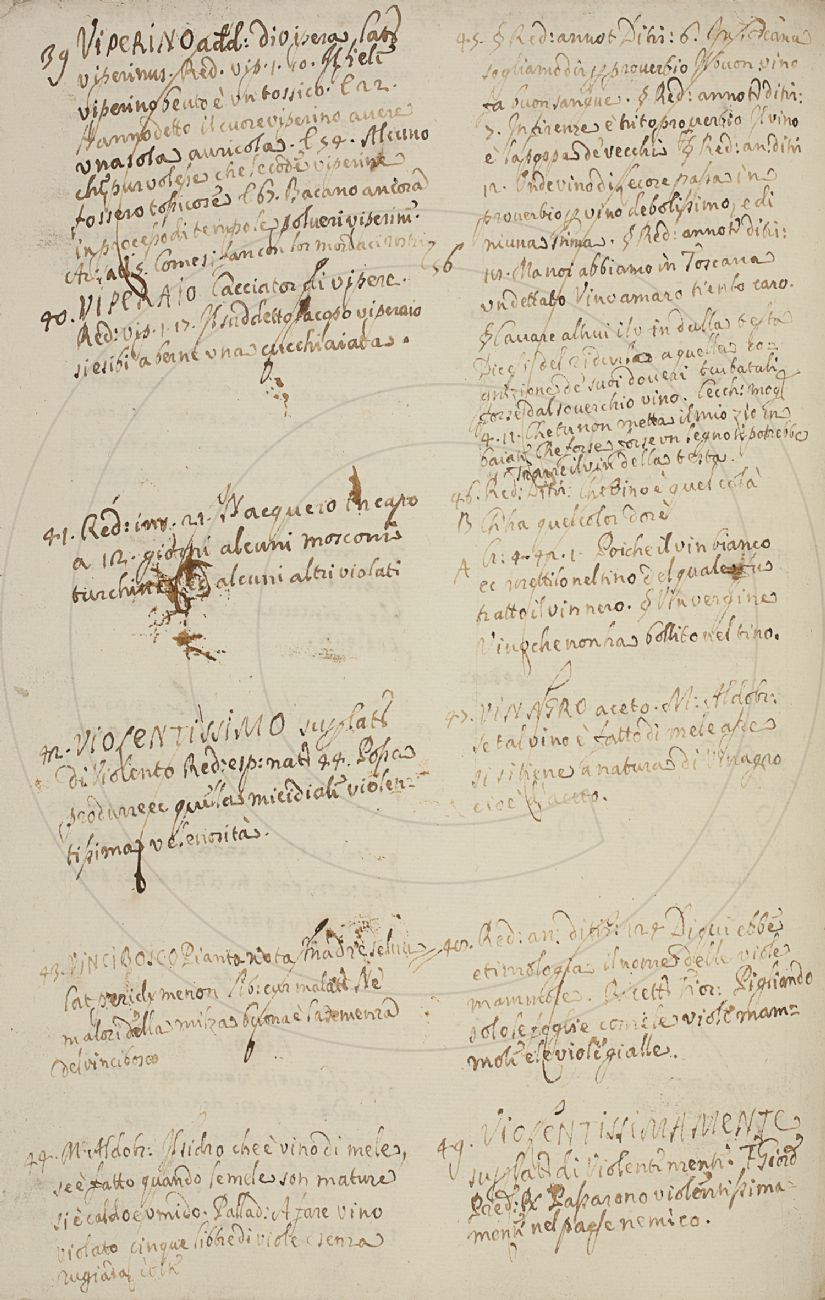 39 VIPERINO add: di vipera, lat.
viperinus. Red. vip. 1. 10. Il fiele
viperino bevuto è un tossico. E 12.
Hanno detto il cuore viperino avere
una sola auricola. E 54. Alcuno
che pur volesse che le code viperine
fossero tossicose E 67. Bacano ancora
in processo di tempo le polveri viperine.
con lor mordaci rostri
40. VIPERAIO Cacciator di vipere.
Red: vip. 1. 17. Il suddetto Jacopo viperaio
si esibì a berne una cucchiaiata.
41. Red: ins. 21. Nacquero in capo
a 12. giorni alcuni mosconi
turchini ed alcuni altri violati
42. VIOLENTISSIMO superlat.
di Violento Red: esp: nat. 44. Possa
produrre quella micidiale violen=
tissima velenosità.
43. VINCIBOSCO Pianta nota Madreselva
lat. periclymenon Lib: cur malatt. Ne
malori della milza buona è la semenza
del vincibosco
44. M. Aldobr: Il sidro che è vino di mele,
se è fatto quando le mele son mature
si è caldo e umido. Pallad: A fare vino
violato cinque libbre di viole senza
rugiada
56
45. § Red: annot Ditir: 6. In Toscana
sogliamo dir per proverbio Il buon vino
fa buon sangue. § Red: annot ditir:
7. In firenze è trito proverbio Il vino
è la poppa de vecchi § Red: an: ditir
12. Onde vino di Lecore passa in
proverbio per vino debolissimo, e di
niuna stima. § Red: annot ditir:
118. Ma noi abbiamo in Toscana
un dettato Vino amaro tienlo caro.
§ Cavare altrui il vin dalla testa
Dicesi del ridurlo a quella co=
gnizione de suoi doveri turbatali
forse dal soverchio vino. Cecch: mogl
4. 11. Che tu non metta il mio zio in
baia. Che forse forse un legno ti potrebbe
trarre il vin della testa.
46. Red: Ditir: Che vino è quel colà
B Ch'ha quel color dorè
A Cr: 4. 41. 1. Poiche il vin bianco
ec mettilo nel tino del quale fu
tratto il vin nero. § Vin vergine
Vino che non ha bollito nel tino.
47. VINAGRO aceto. M: Aldobr:
Se tal vino è fatto di mele aspre
si si tiene a natura di Vinagro
cioè d'aceto.
48. Red: an: ditir: 124 Di qui ebbe
etimologia il nome delle viole
mammole. Ricett. fior: Pigliando
solo le foglie come le viole mam=
mole e le viole gialle.
49. VIOLENTISSIMAMENTE
superlat di Violentemente F. Giord
Pred: R. Passarono violentissima=
mente nel paese nemico.